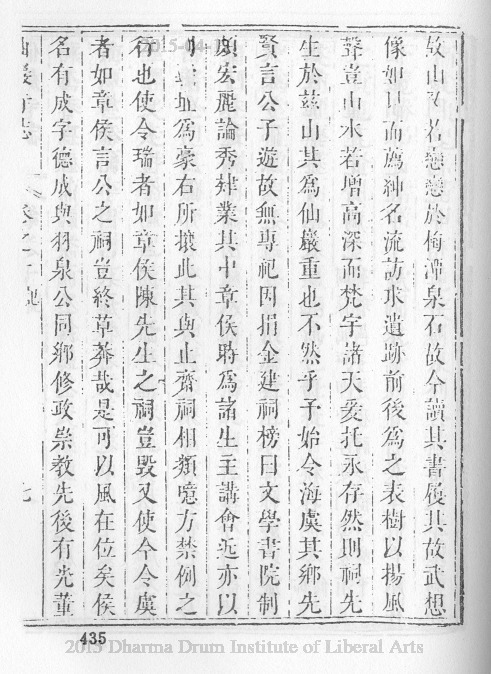 故山又若戀戀於梅潭泉石故今讀其書履其故武想
像如見而薦紳名流訪求遺跡前後為之表樹以揚風
聲豈山水若增高深而梵宇諸天爰托永存然則祠先
生於茲山其為仙巖重也不然乎予始令海虞其鄉先
賢言公子遊故無專祀因捐金建祠榜曰文學書院制
頗宏麗論秀肄業其中章侯時為諸生主講會近亦以
為豪右所攘此其與止齋祠相類噫方禁例之
行也使令瑞者如章侯陳先生之祠豈毀又使今令虞
者如章侯言公之祠豈終草莽哉是可以風在位矣侯
名有成字德成與羽泉公同鄉修政崇教先後有光董
志 卷之 七
435
2015-04
2015 Dharma Drum Institute of Liberal Arts